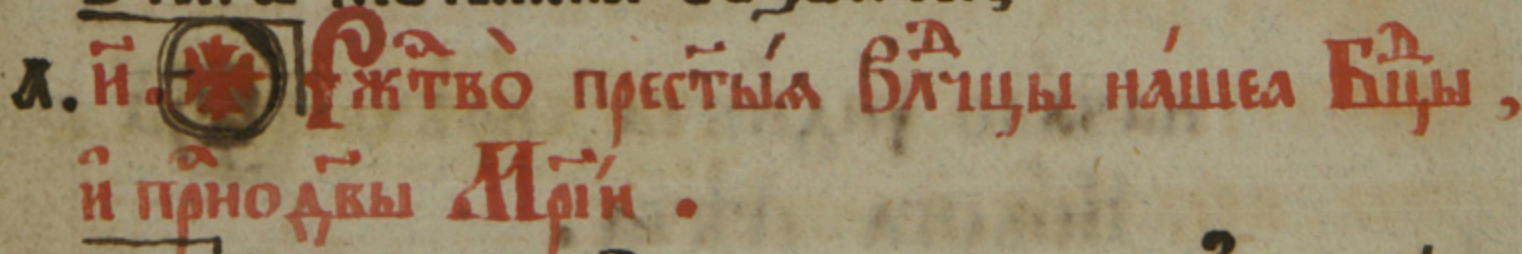 л. и҃. Рж҇тво̀ прест҃ы́ѧ влⷣчцы на́шеѧ Бцⷣы,
и҆ прⷭ҇нодв҃ы Мр҃і́и.